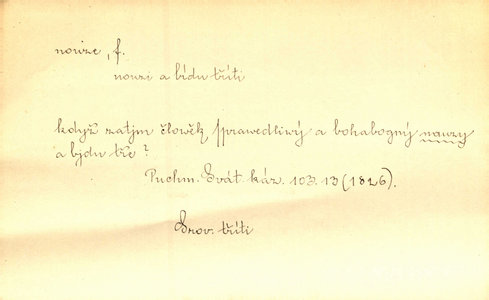 nouze, f.
nouzi a bídu tříti
když zatjm člowěk sprawedliwý a bohabogný nauzy
a bjdu tře?
Puchm. Svát. káz. 103. 13 (1826).
Srov. tříti